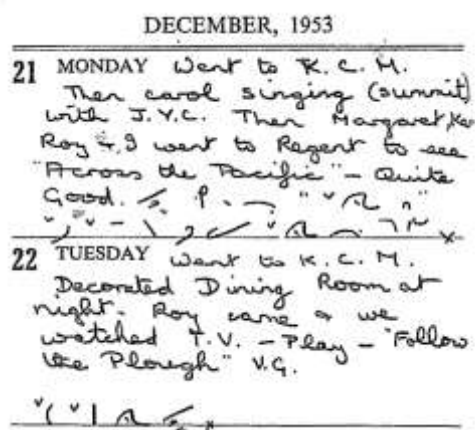 DECEMBER, 1953
21 MONDAY Went to K.C.M.
Then carol singing (summit)
with J.Y.C. Then Margaret, Ken
Roy & I went to Regent to see
"Across the Pacific" - Quite
Good.
22 TUESDAY Went to K.C.M.
Decorated Dining Room at
night. Roy came & we
watched T.V. - Play - "Follow
the Plough" V.G.